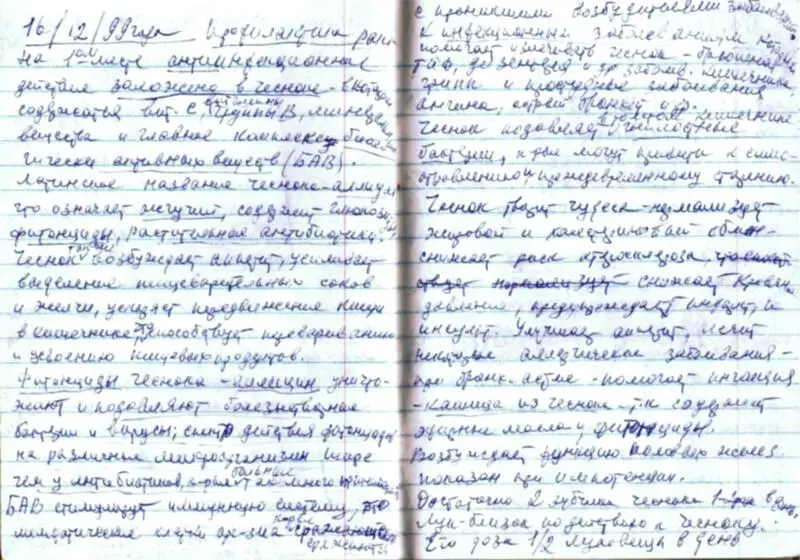 16/12/99 года Профилактика
На 1ом месте антиинфекционное
действие заложено в чесноке - в котором
содержатся вит. С, группы В,
вещества и главное комплекс биоло-
гически активных веществ (БАВ).
Латинское название чеснока - аллиум,
что означает жгучий, содержит
фитонциды, растительные антибиотики.
Чеснок возбуждает аппетит, усиливает
выделение пищеварительных соков
и желчи, ускоряет передвижение пищи
в кишечнике, способствует пищеварению
и усвоению пищевых продуктов.
Фитонциды чеснока - аллицин уничто-
жают и подавляют болезнетворные
бактерии и вирусы; действия фитонцидов
на различные микроорганизмы шире
чем у антибиотиков,
БАВ стимулируют иммунную систему, это
лимфатические клетки
сражаются
с проникшими возбудителями
к инфекционным заболеваниям
помогает излечивать чеснок - брюшной
тиф, дизентерия и др. заболев. кишечника,
грипп и простудные заболевания
ангина, острый бронхит и др.
Чеснок подавляет гнилостные
бактерии, к-рые могут привести к само-
отравлению и преждевременному старению.
Чеснок творит чудеса - нормализует
жировой и холестериновый обмен -
снижает риск атеросклероза,
снижает кровян.
давление, предупреждает инфаркт, и
инсульт. Улучшает аппетит, лечит
некоторые аллергические заболевания -
при бронх. астме - помогает ингаляция
- кашица из чеснока - т.к. содержит
эфирные масла и фитонциды.
Возбуждает функцию половых желез
показан при импотенции.
Достаточно 2 зубчика чеснока 1 раз в день,
Лук - близок по действию к чесноку.
Его доза 1/2 луковицы в день